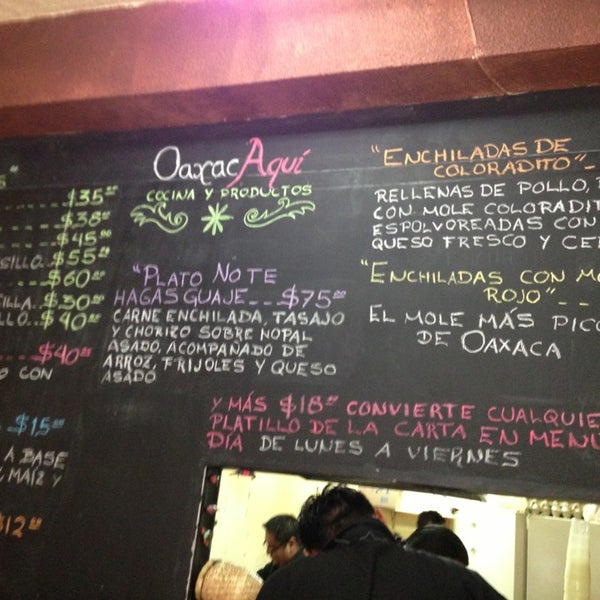 $35.00
$38.00
$45.00
$55.00
$60.00
$30.00
$40.00
$40.00
O CON
$15.00
A BASE
MAÍZ Y
$12.00
OaxacAquí
COCINA Y PRODUCTOS
"PLATO NO TE
HAGAS GUAJE...$75.00
CARNE ENCHILADA, TASAJO
Y CHORIZO SOBRE NOPAL
ASADO, ACOMPAÑADO DE
ARROZ, FRIJOLES Y QUESO
ASADO
"ENCHILADAS DE
COLORADITO"--
RELLENAS DE POLLO,
CON MOLE COLORADIT
ESPOLVOREADAS CON
QUESO FRESCO Y CE
"ENCHILADAS CON MO
ROJO"--
EL MOLE MÁS PICO
DE OAXACA
Y MÁS $18.00 CONVIERTE CUALQUIE
PLATILLO DE LA CARTA EN MENÚ
DÍA DE LUNES A VIERNES